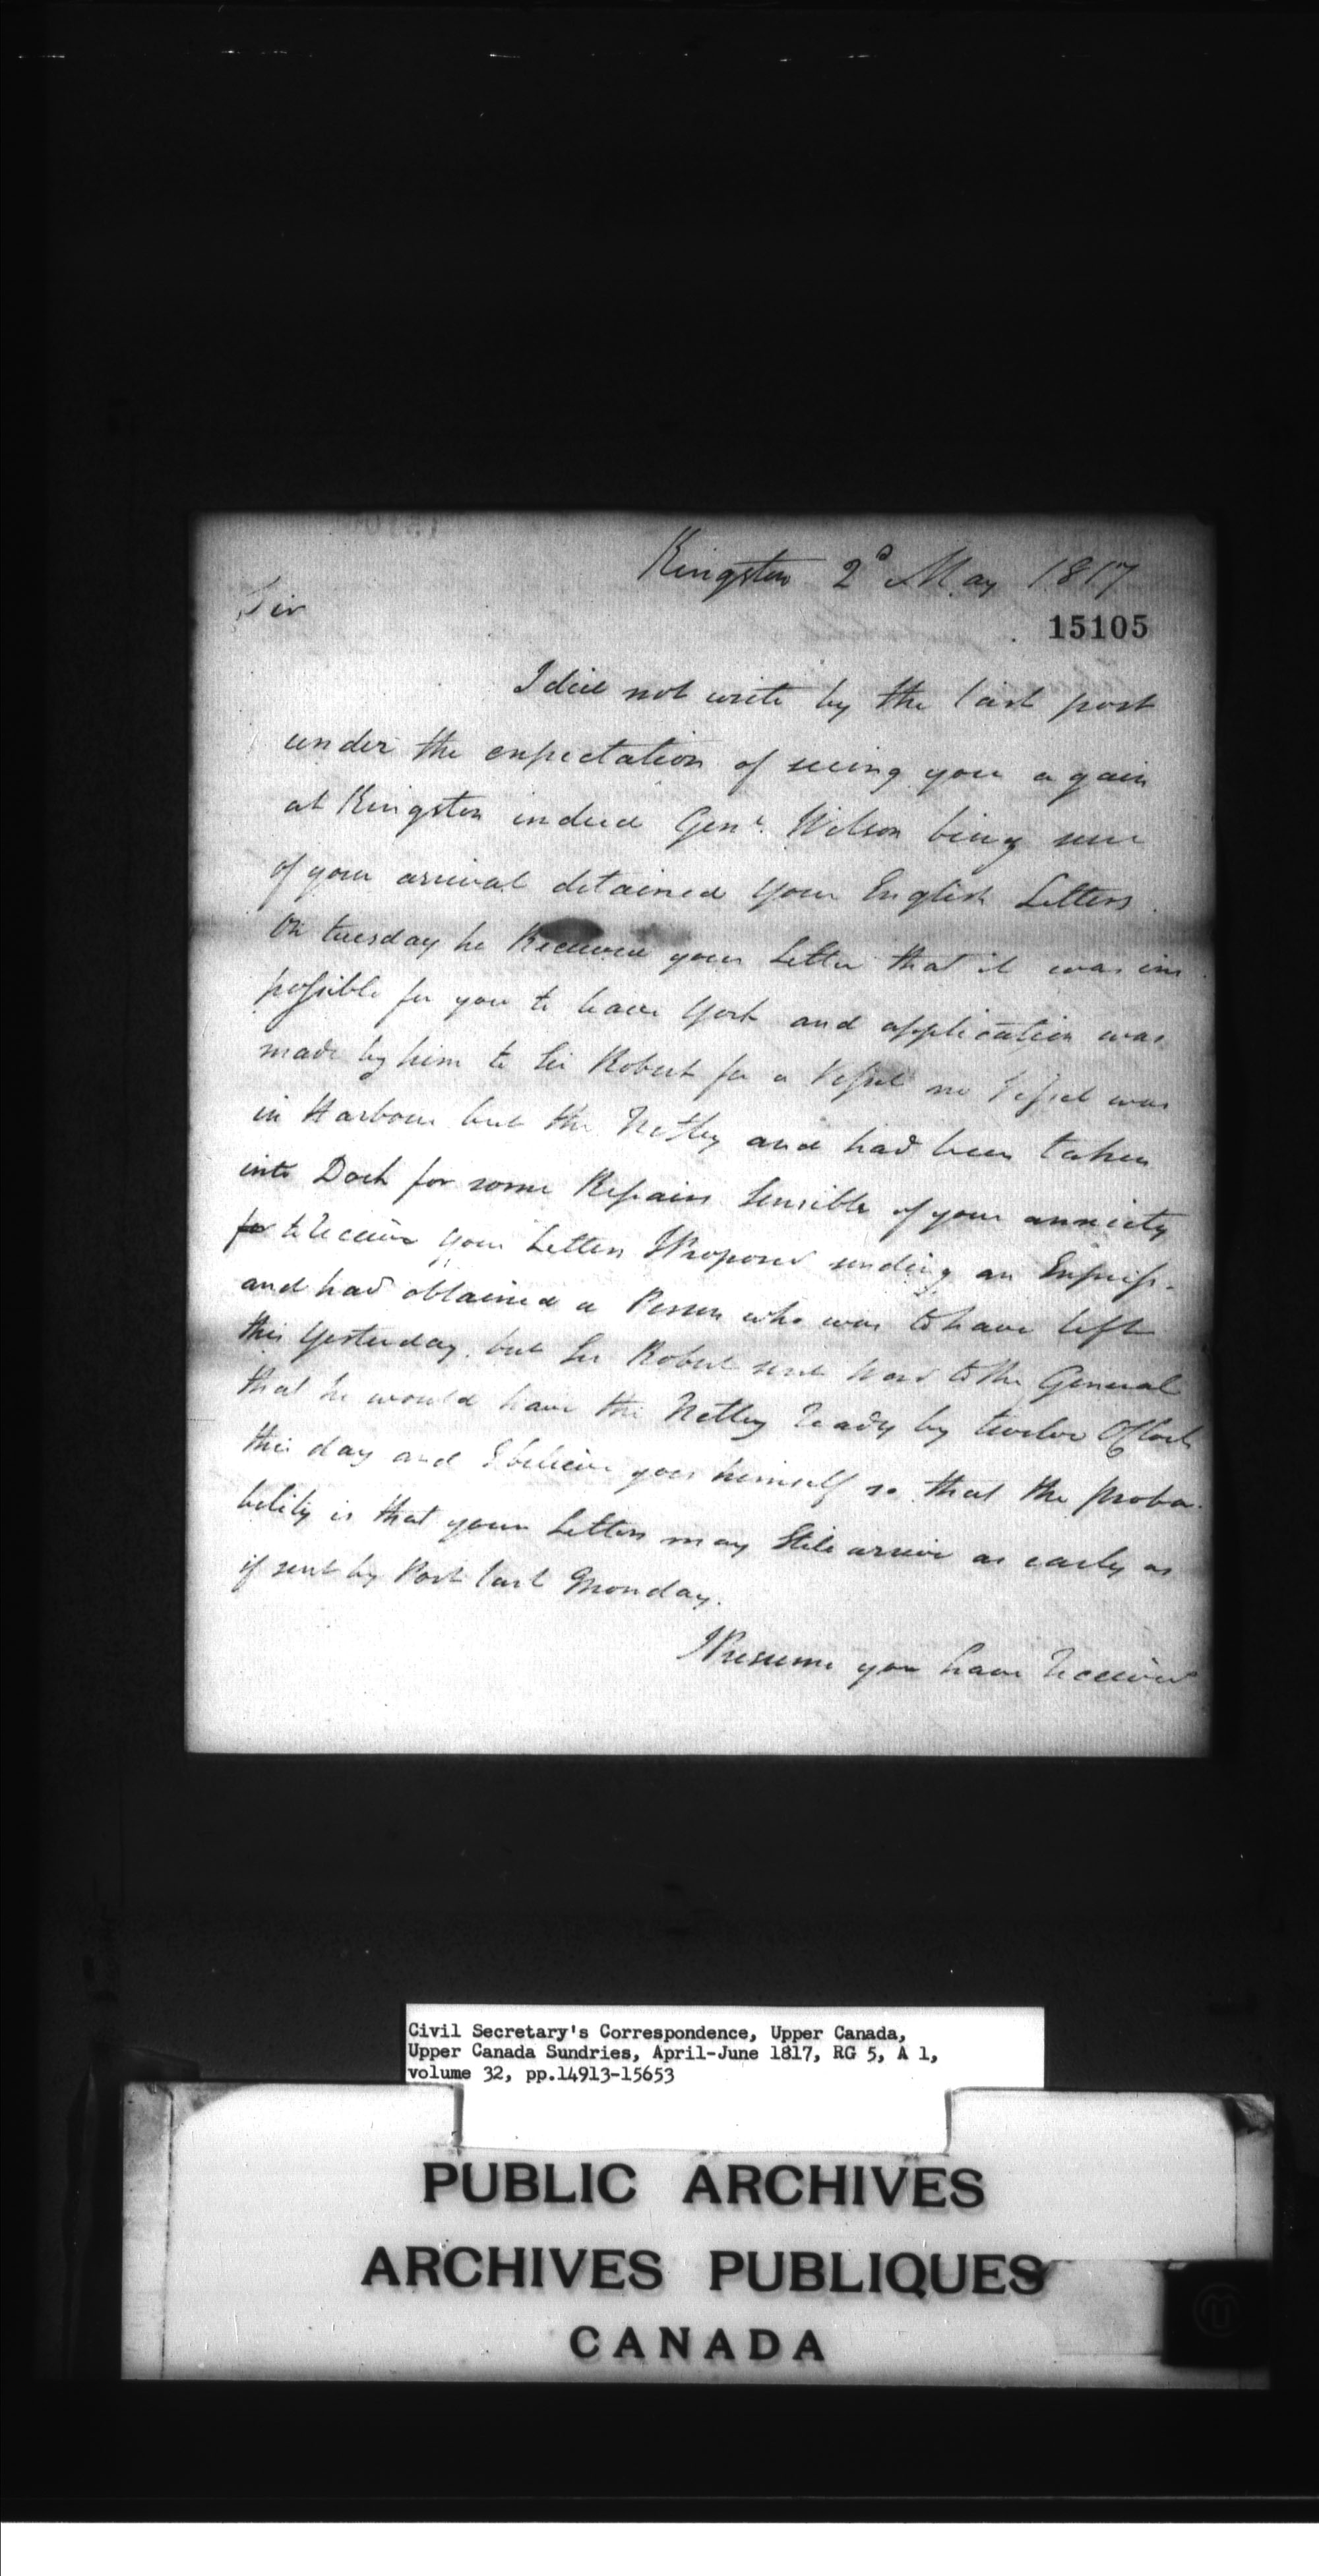 Kingston 2d May 1817
Sir
15105
I did not write by the last post
under the expectation of seeing you again
at Kingston indeed Genl. Wilson being sure
of your arrival detained your English Letters.
On tuesday he Received your Letter that it was im
possible for you to leave York and application was
made by him to Sir Robert for a Vessel no Vessel was
in Harbour but the Netley and had been taken
into Dock for some Repairs Sensible of your anxiety
for to receive your Letters I Proposed sending an Express.
and had obtained a Person who was to have left
this Yesterday. but Sir Robert sent word to the General
that he would have the Netley ready by twelve OClock
this day and I believe goes himself so that the proba-
bility is that your Letters may Still arrive as early as
if sent by Post last Monday.
I Presume you have received
Civil Secretary's Correspondence, Upper Canada,
Upper Canada Sundries, April-June 1817, RG 5, A 1,
volume 32, pp.14913-15653
PUBLIC ARCHIVES
ARCHIVES PUBLIQUES
CANADA